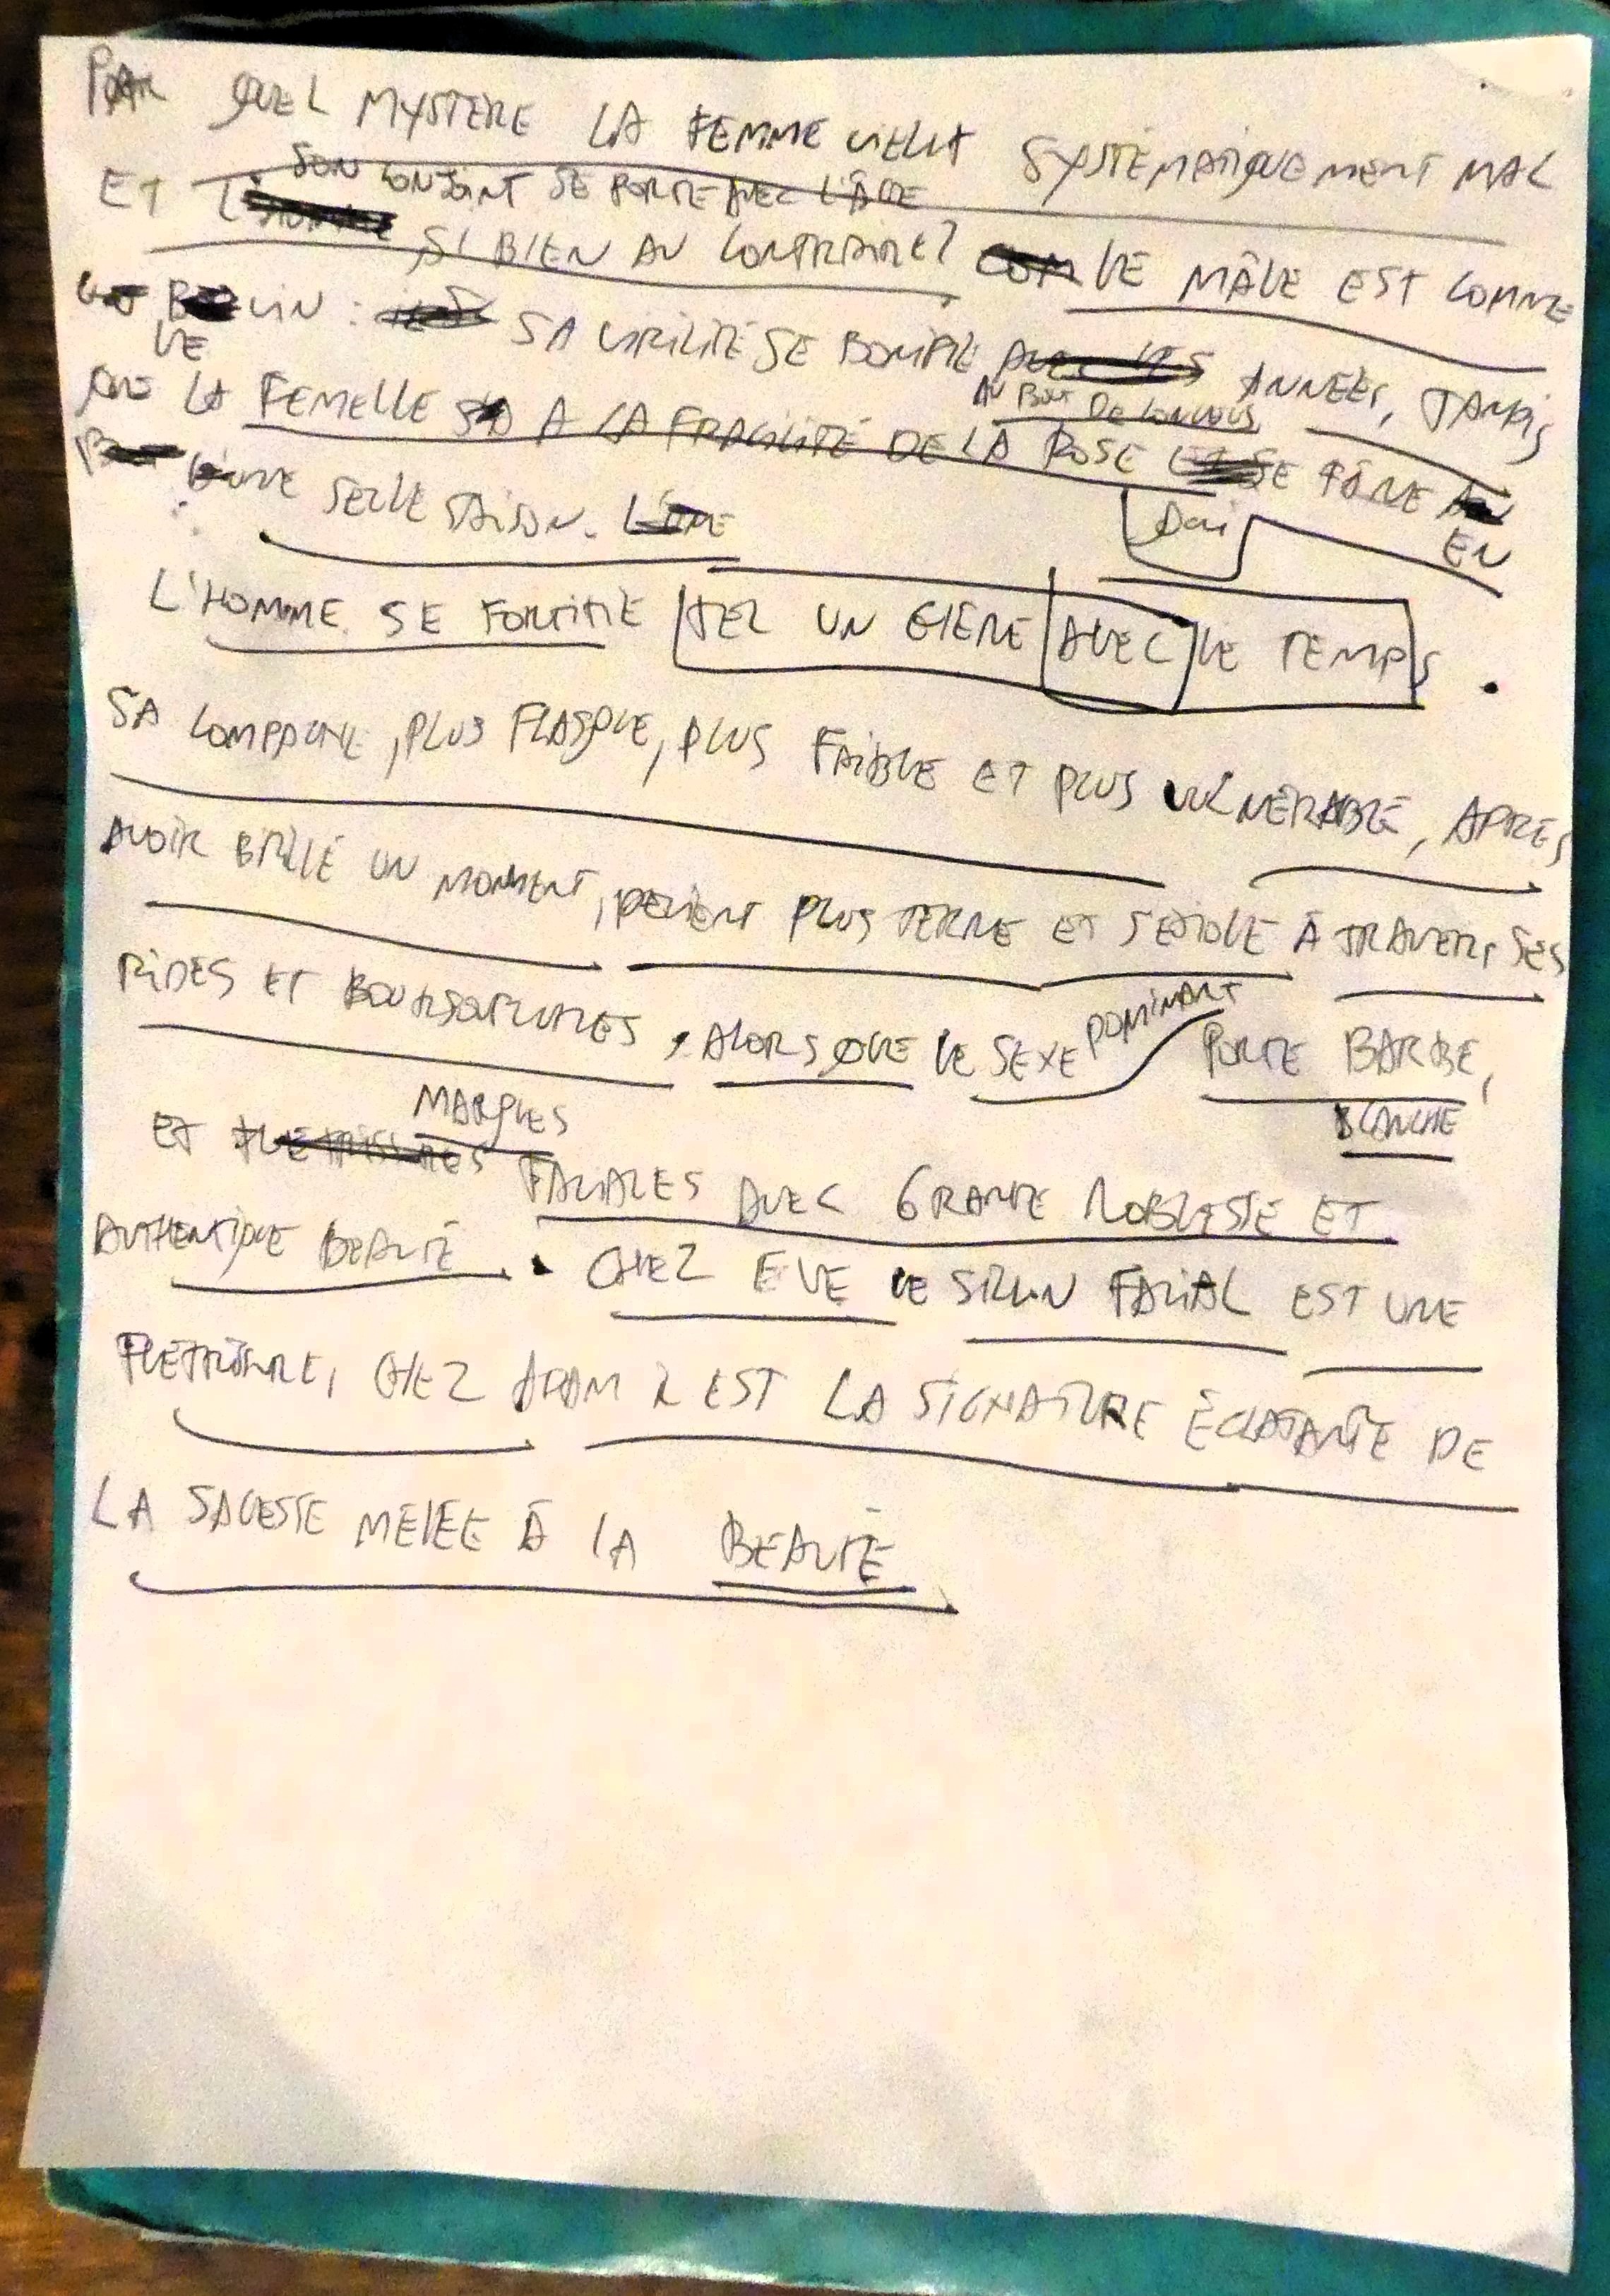 PAR QUEL MYSTÈRE LA FEMME VIELLIT SYSTÉMATIQUEMENT MAL
SON CONJOINT SE PORTE AVEC L'ÂGE
ET SI BIEN AU CONTRAIRE? LE MÂLE EST COMME
VIN : SA VIRILITÉ SE BONIFIE ANNÉES, TANDIS
LE
AU BOUT DE
QUE LA FEMELLE A LA FRAGILITÉ DE LA ROSE SE FÂNE
EN
UNE SEULE SAISON.
L'HOMME SE FORTIFIE TEL UN AVEC LE TEMPS.
SA COMPAGNE, PLUS FLASQUE, PLUS FAIBLE ET PLUS VULNÉRABLE, APRÈS
AVOIR BRILLÉ UN MOMENT, DEVIENT PLUS TERNE ET S'ÉTIOLE À TRAVERS SES
RIDES ET BOURSOUFLURES, ALORS QUE LE SEXE DOMINANT PORTE BARBE,
BLANCHE
MARQUES
ET FACIALES AVEC GRANDE NOBLESSE ET
AUTHENTIQUE BEAUTÉ. CHEZ EVE LE SILLON FACIAL EST UNE
FLÉTRISSURE, CHEZ ADAM IL EST LA SIGNATURE ÉCLATANTE DE
LA SAGESSE MÊLÉE À LA BEAUTÉ